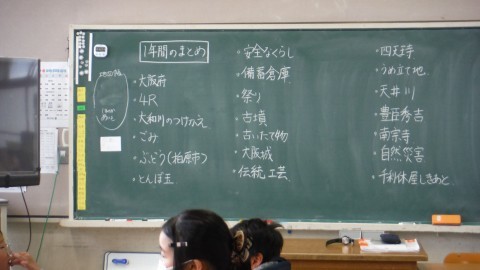 1年間のまとめ
・大阪府
・4R
・大和川のつけかえ
・ごみ
・ぶどう(柏原市)
・とんぼ玉
・安全なくらし
・備蓄倉庫
・祭り
・古墳
・古いたて物
・大阪城
・伝統工芸
・四天王寺
・うめ立て地
・天井川
・豊臣秀吉
・南宗寺
・自然災害
・千利休屋しきあと